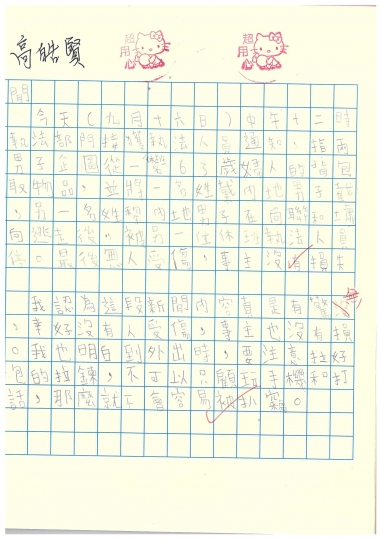 高皓賢
超用心
超用心
聞
今天(九月十六日)中午十二時
執法部門接獲執法人員通知,指兩
男子企圖從一名63歲婦人的背包
取物品,並將一名姓 內地男子截
,另一名姓 內地男子在向聯和墟
向逃走後,被另一位休班執法人員
停。最後無人受傷,事主沒有損失
我認為這段新聞內容真是有驚無
,幸好沒有人受傷,事主也沒有損
。我也明白到外出時,要注意拉好
包的拉鍊,不可以只顧玩手機和打
話,那麼就不會容易被扒竊。